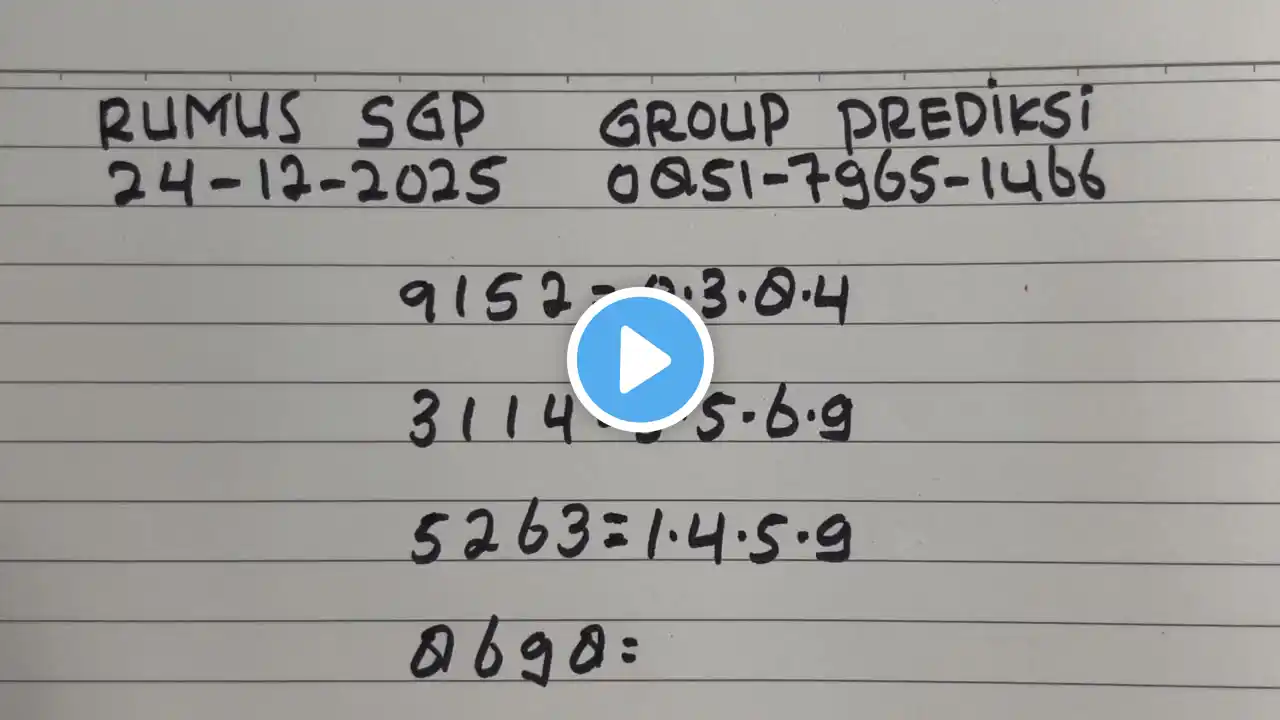 RUMUS SGP GROUP PREDiKSi
24-12-2025 0851-7965-1466
9152= ·3·8·4
3114 ·5·6·9
5263=1·4·5·9
8698=